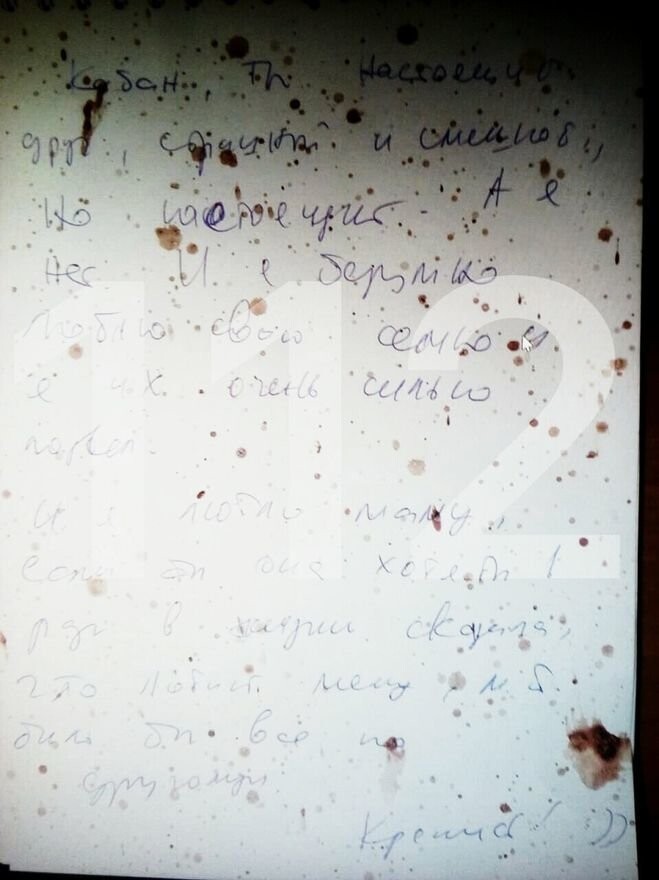 Кабан, ты настоящий
друг, и смешной,
но настоящий. А я
нет И я безумно
люблю свою семью и
я их очень сильно
подвел.
И я люблю маму,
Если бы она хотя бы 1
раз в жизни сказала,
что любит меня, м.б.
было бы все по
другому.
))
112